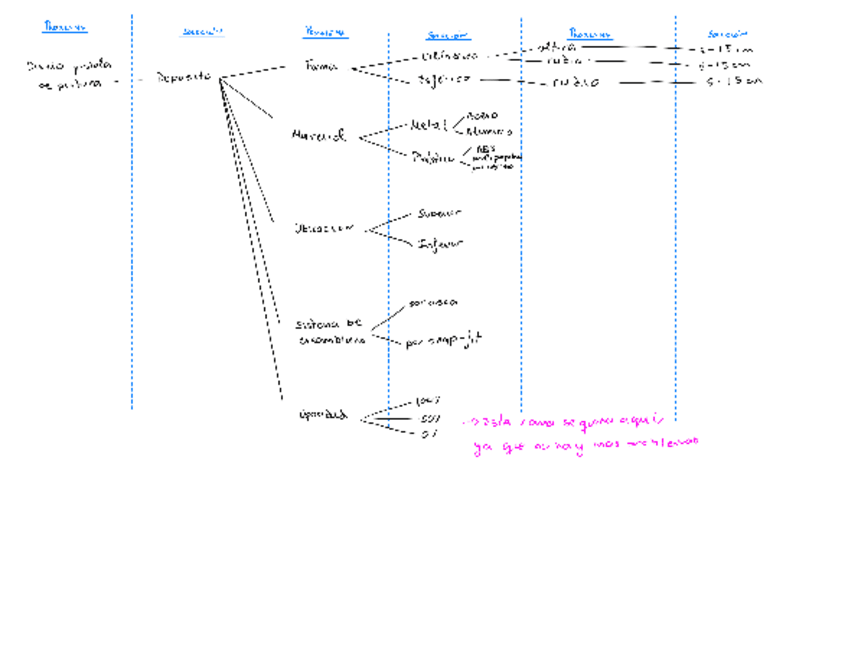 Problema
Solución
Problema
Solución
Problema
Solución
Diseño pistola
de pintura
Deposito
Forma
Cilíndrico
altura
5-15 cm
radio
5-15 cm
Esférico
radio
5-15 cm
Material
Metal
Acero
Aluminio
Plástico
ABS
Ubicación
Superior
Inferior
Sistema de
ensamblaje
por rosca
por snap-fit
Opacidad
100%
50%
0%
Esta rama se queda aquí
ya que no hay mas problemas